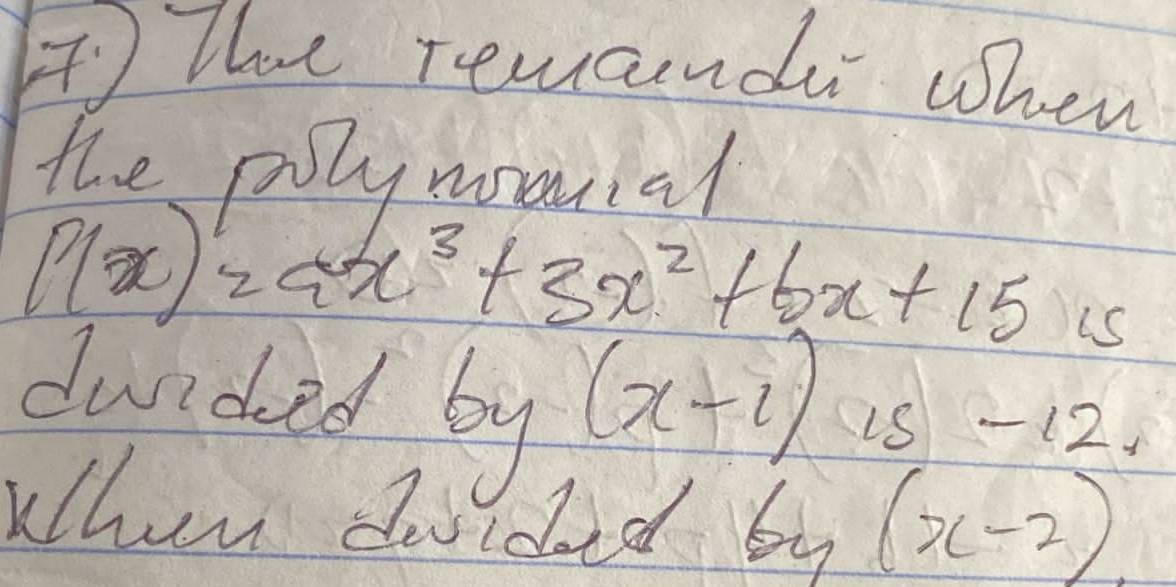 7.) The remainder when
the polynomial
P(x) = ax³ + 3x² + bx + 15 is
divided by (x-1) is -12.
When divided by (x-2)